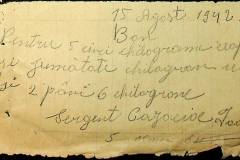 15 August 1942
Bon
Pentru 5 cinci chilograme
și jumătate chilogram
și 2 pâni 6 chilograme
Sergent
5